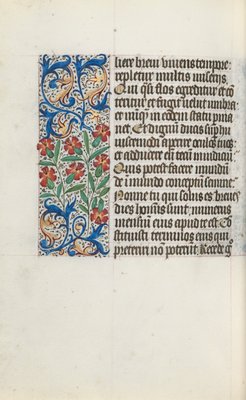 lier breui viuens tempore
repletur multis miserijs.
Qui quasi flos egreditur et cō
teritur et fugit velut umbra
et nūq̄ in eodem statu pma
net. Et dignum ducis sup hu
iuscemodi aperire oculos tuos
et adducere eū tecū in iudiciū.
Quis potest facere mundum
de imundo conceptum semine.
Nonne tu qui solus es Breues
dies hominis sunt: numerus
mensium eius apud te est. Cō
stituisti terminos eius qui
preteriri non poterūt. Recede g̊